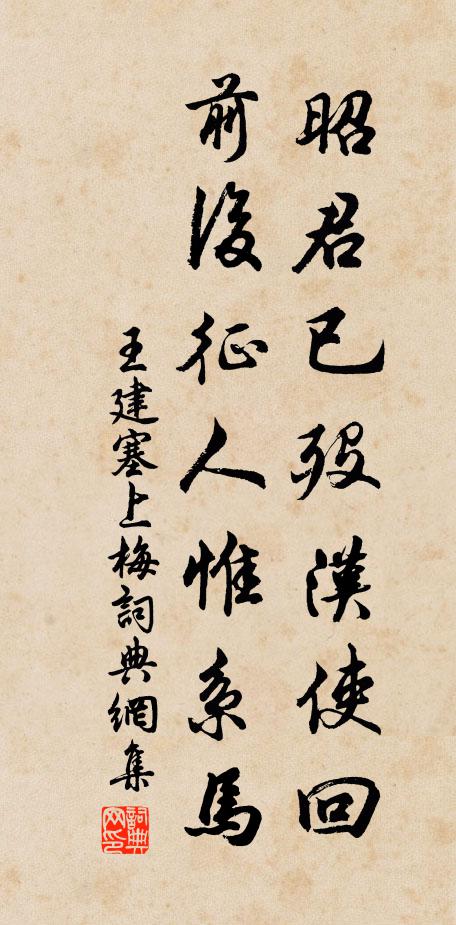 昭君已歿漢使回
前後征人惟系馬
王建塞上梅詞典網集
詞典网印